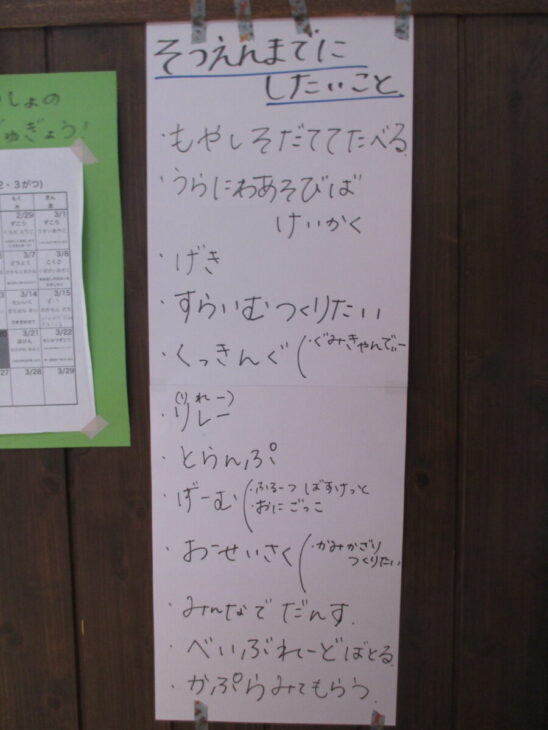 そつえんまでに
したいこと
・もやしそだててたべる
・うらにわあそびば
けいかく
・げき
・すらいむつくりたい
・くっきんぐ(・ぐみきゃんでぃー
(りれー)
・リレー
・とらんぷ
・げーむ(・ふるーつばすけっと
・おにごっこ
・おーせいさく(・かみかざり
つくりたい
・みんなでだんす
・べいぶれーどばとる
・かぷらみてもらう
しょの
じゅぎょう!
2・3がつ)
もく
木
きん
金
2/29
3/1
ずこう
ずこう
3/7
3/8
どうとく
こくご
3/14
3/15
3/21
3/22
27
3/28
3/29